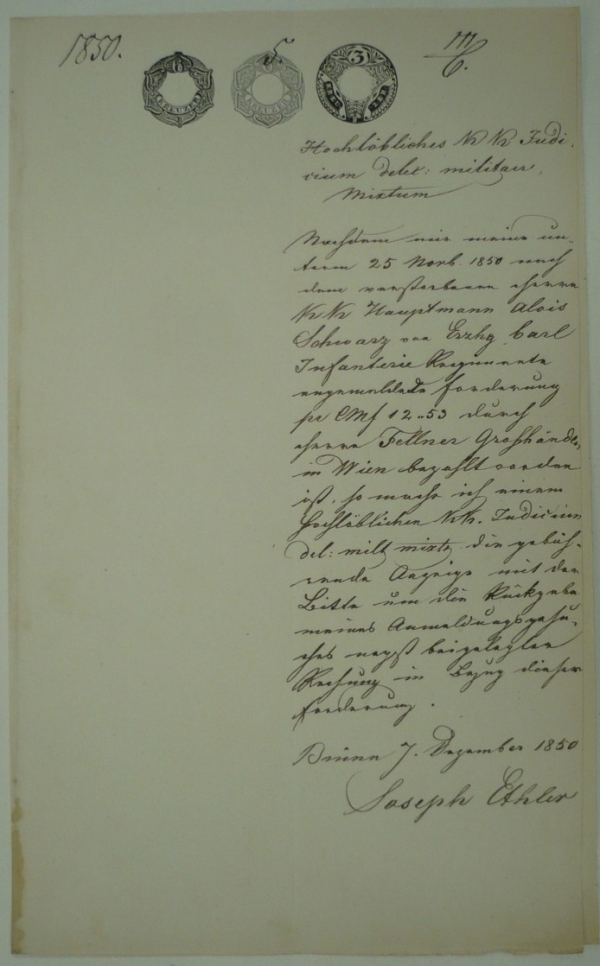 1850.
5.
6 KREUZER
KREUZER
3
Hochlöbliches K K Judi-
cium deleg: militare
Mixtum
Nachdem mir meine un-
term 25 Novb 1850 nach
dem verstorbenen Herrn
K K Hauptmann Alois
Schwarz von Erzhg Carl
Infanterie Regimente
angemeldete Forderung
pr CMf 12..53 durch
Herrn Fellner Großhändler
in Wien bezahlt worden
ist, so mache ich einem
Hochlöblichen K.K. Judicium
del: milt mixto die gebüh-
rende Anzeige mit der
Bitte um die Rückgabe
meines Anmeldungsgesu-
ches nebst beigelegter
Rechnung in Bezug dieser
Forderung.
Brünn 7. Dezember 1850
Joseph Ethler